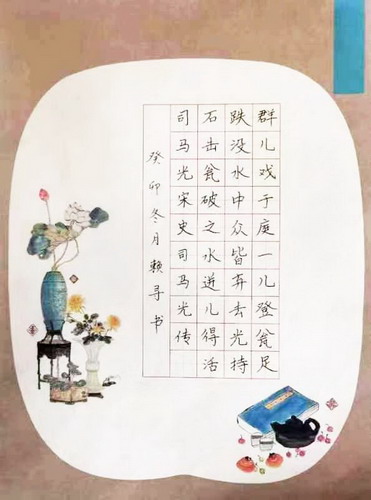 群儿戏于庭一儿登瓮足
跌没水中众皆弃去光持
石击瓮破之水迸儿得活
司马光宋史司马光传
癸卯冬月赖寻书